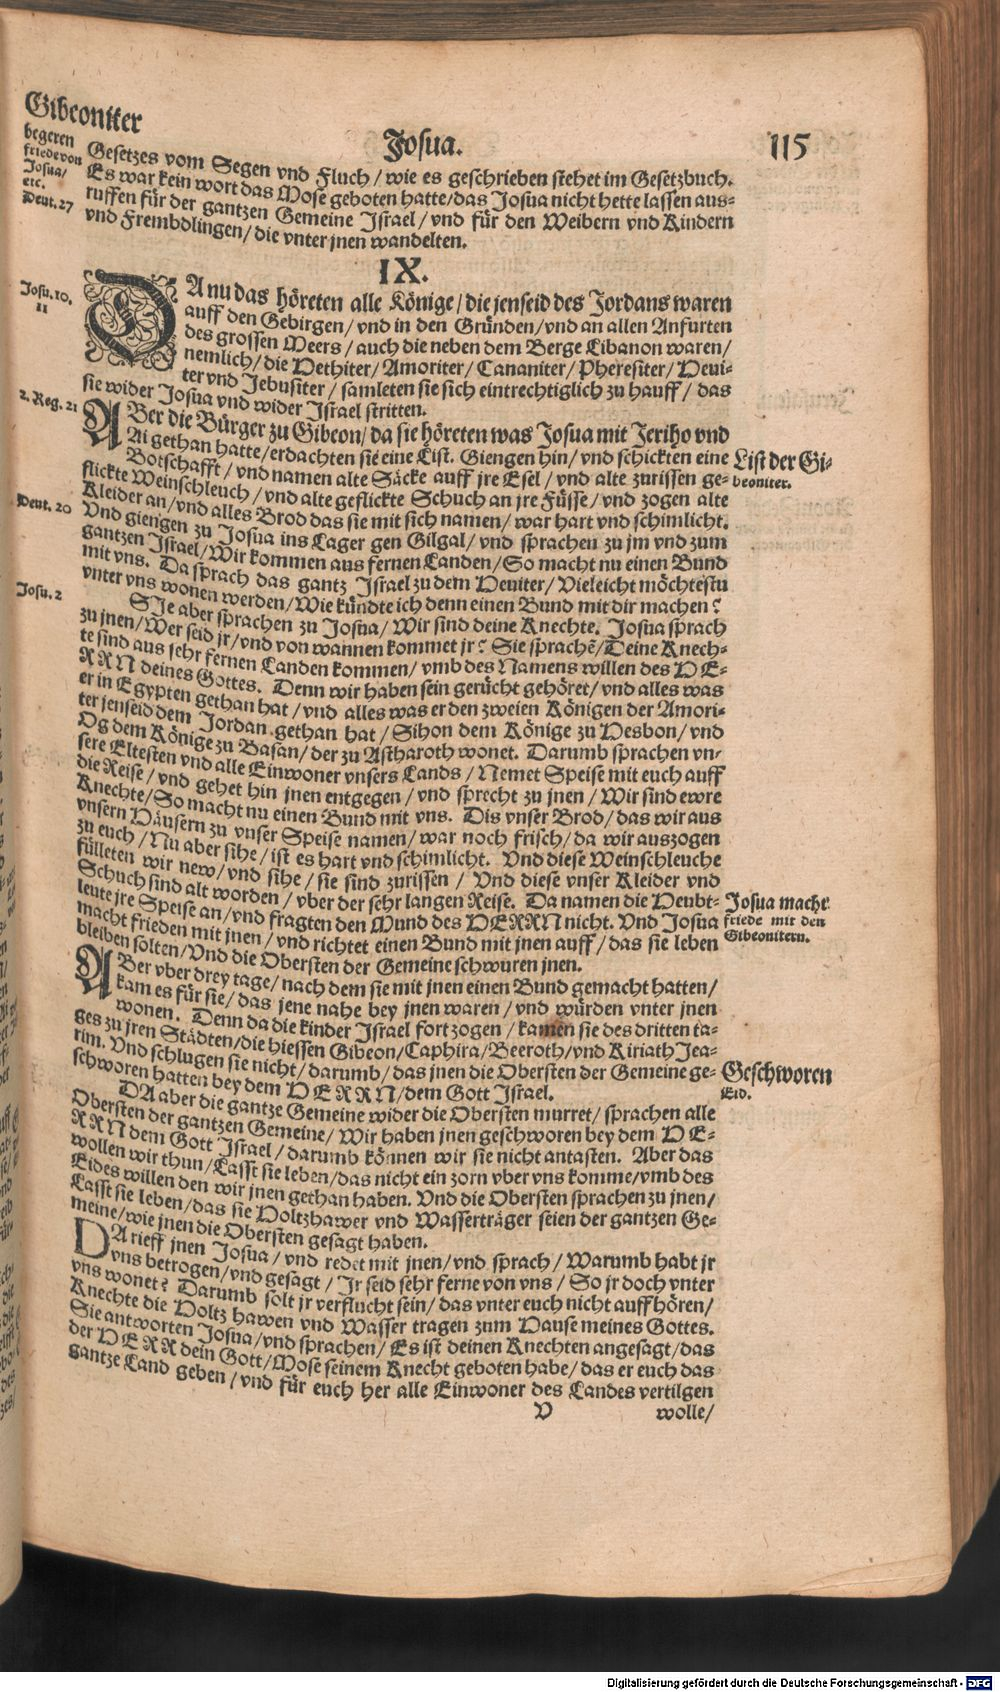 Gibeoniter
begeren
friede von
Josua/
etc.
Deut. 27
Josua.
115
Gesetzes vom Segen vnd Fluch / wie es geschrieben stehet im Gesetzbuch.
Es war kein wort das Mose geboten hatte / das Josua nicht hette lassen aus-
ruffen für der gantzen Gemeine Jsrael / vnd für den Weibern vnd Kindern
vnd Frembdlingen / die vnter jnen wandelten.
IX.
Josu. 10.
11
DA nu das höreten alle Könige / die jenseid des Jordans waren
auff den Gebirgen / vnd in den Gründen / vnd an allen Anfurten
des grossen Meers / auch die neben dem Berge Libanon waren /
nemlich / die Hethiter / Amoriter / Cananiter / Pheresiter / Heui-
ter vnd Jebusiter / samleten sie sich eintrechtiglich zu hauff / das
sie wider Josua vnd wider Jsrael stritten.
2. Reg. 21
ABer die Bürger zu Gibeon / da sie höreten was Josua mit Jeriho vnd
Ai gethan hatte / erdachten sie eine List. Giengen hin / vnd schickten eine
List der Gi-
beoniter.
Botschafft / vnd namen alte Säcke auff jre Esel / vnd alte zurissen ge-
flickte Weinschleuch / vnd alte geflickte Schuch an jre Füsse / vnd zogen alte
Kleider an / vnd alles Brod das sie mit sich namen / war hart vnd schimlicht.
Deut. 20
Vnd giengen zu Josua ins Lager gen Gilgal / vnd sprachen zu jm vnd zum
gantzen Jsrael / Wir kommen aus fernen Landen / So macht nu einen Bund
mit vns. Da sprach das gantz Jsrael zu dem Heuiter / Vieleicht möchtestu
vnter vns wonen werden / Wie kündte ich denn einen Bund mit dir machen?
Josu. 2
SJe aber sprachen zu Josua / Wir sind deine Knechte. Josua sprach
zu jnen / Wer seid jr / vnd von wannen kommet jr? Sie sprachẽ / Deine Knech-
te sind aus sehr fernen Landen kommen / vmb des Namens willen des HE-
RRN deines Gottes. Denn wir haben sein gerücht gehöret / vnd alles was
er in Egypten gethan hat / vnd alles was er den zweien Königen der Amori-
ter jenseid dem Jordan gethan hat / Sihon dem Könige zu Hesbon / vnd
Og dem Könige zu Basan / der zu Astharoth wonet. Darumb sprachen vn-
sere Eltesten vnd alle Einwoner vnsers Lands / Nemet Speise mit euch auff
die Reise / vnd gehet hin jnen entgegen / vnd sprecht zu jnen / Wir sind ewre
Knechte / So macht nu einen Bund mit vns. Dis vnser Brod / das wir aus
vnsern Häusern zu vnser Speise namen / war noch frisch / da wir auszogen
zu euch / Nu aber sihe / ist es hart vnd schimlicht. Vnd diese Weinschleuche
fülleten wir new / vnd sihe / sie sind zurissen / Vnd diese vnser Kleider vnd
Schuch sind alt worden / vber der sehr langen Reise. Da namen die Heubt-
leute jre Speise an / vnd fragten den Mund des HERRN nicht. Vnd Josua
macht frieden mit jnen / vnd richtet einen Bund mit jnen auff / das sie leben
bleiben solten / Vnd die Obersten der Gemeine schwuren jnen.
Josua mache
friede mit den
Gibeonitern.
ABer vber drey tage / nach dem sie mit jnen einen Bund gemacht hatten /
kam es für sie / das jene nahe bey jnen waren / vnd würden vnter jnen
wonen. Denn da die kinder Jsrael fort zogen / kamen sie des dritten ta-
ges zu jren Städten / die hiessen Gibeon / Caphira / Beeroth / vnd Kiriath Jea-
rim. Vnd schlugen sie nicht / darumb / das jnen die Obersten der Gemeine ge-
schworen hatten bey dem HERRN / dem Gott Jsrael.
Geschworen
Eid.
DA aber die gantze Gemeine wider die Obersten murret / sprachen alle
Obersten der gantzen Gemeine / Wir haben jnen geschworen bey dem HE-
RRN dem Gott Jsrael / darumb können wir sie nicht antasten. Aber das
wollen wir thun / Lasst sie leben / das nicht ein zorn vber vns komme / vmb des
Eides willen den wir jnen gethan haben. Vnd die Obersten sprachen zu jnen /
Lasst sie leben / das sie Holtzhawer vnd Wasserträger seien der gantzen Ge-
meine / wie jnen die Obersten gesagt haben.
DA rieff jnen Josua / vnd redet mit jnen / vnd sprach / Warumb habt jr
vns betrogen / vnd gesagt / Jr seid sehr ferne von vns / So jr doch vnter
vns wonet? Darumb solt jr verflucht sein / das vnter euch nicht auffhören /
Knechte die Holtz hawen vnd Wasser tragen zum Hause meines Gottes.
Sie antworten Josua / vnd sprachen / Es ist deinen Knechten angesagt / das
der HERR dein Gott / Mose seinem Knecht geboten habe / das er euch das
gantze Land geben / vnd für euch her alle Einwoner des Landes vertilgen
V
wolle /
Digitalisierung gefördert durch die Deutsche Forschungsgemeinschaft - DFG